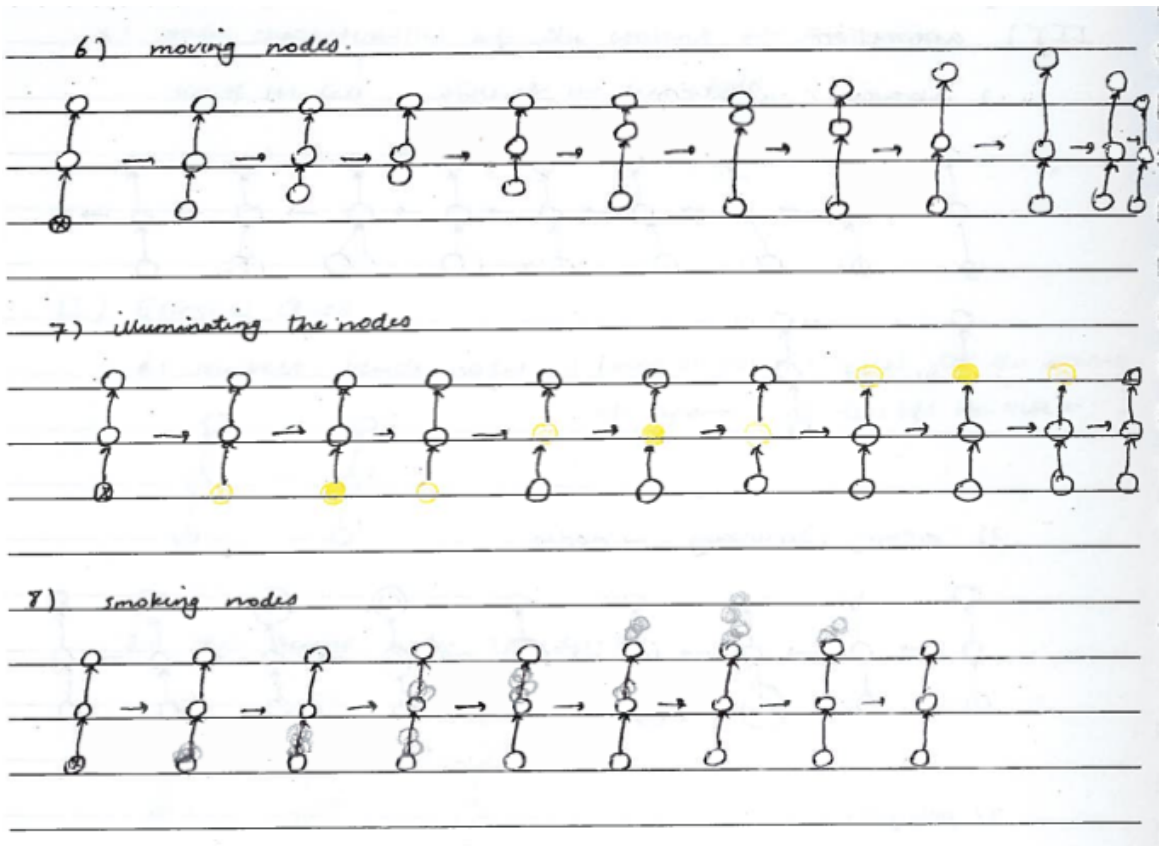 6) moving nodes.
7) illuminating the nodes
8) smoking nodes